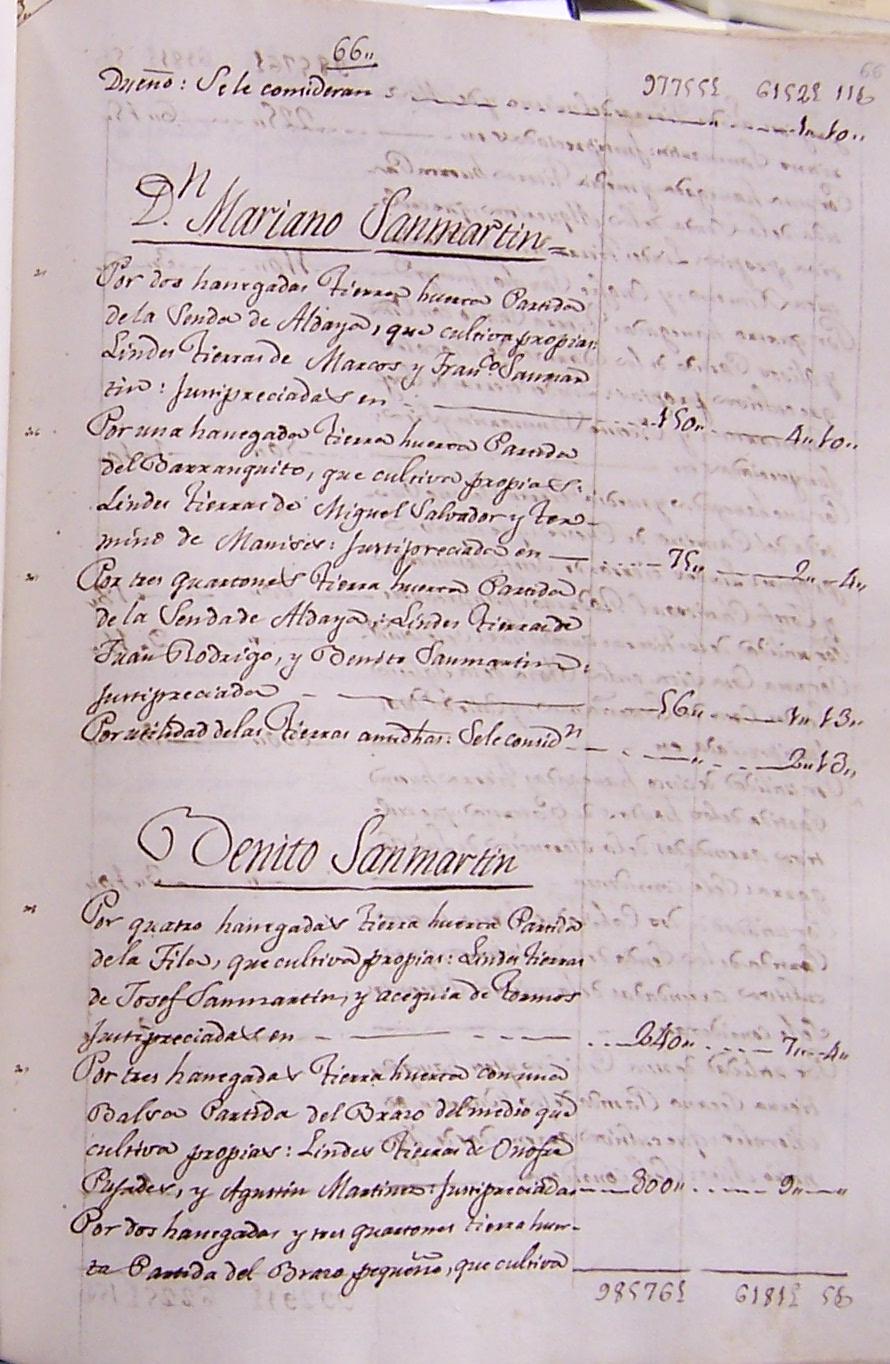 66,,
97755£ 6152£ 11s
Dueño: Se le consideran ,, 1,, 10,,
Dn. Mariano Sanmartin
Por dos hanegadas tierra huerta Partida
de la Senda de Aldaya, que cultiva propias:
Lindes tierras de Marcos y Franco. Sanmar
tin: Justipreciadas en 150,, 4,, 10,,
Por una hanegada tierra huerta Partida
del Barranquito, que cultiva propias:
Lindes tierras de Miguel Salvador y ter-
mino de Manises: Justipreciada en 75,, 2,, 4,,
Por tres quartones tierra huerta Partida
de la Senda de Aldaya: Lindes tierras de
Juan Rodrigo, y Benito Sanmartin:
Justipreciada 56,, 1,, 13,,
Por utilidad de las tierras Se le considn ,, 2,, 13,,
Benito Sanmartin
Por quatro hanegadas tierra huerta Partida
de la Fila, que cultiva propias: Lindes tierras
de Josef Sanmartin, y acequia de tormos
Justipreciadas en 240,, 7,, 4,,
Por tres hanegadas tierra huerta con una
Balsa Partida del Brazo del medio que
cultiva propias: Lindes tierras de Onofre
y Agustin Martinez: Justipreciadas 300,, 9,, ,,
Por dos hanegadas y tres quartones tierra huer-
ta Partida del Brazo pequeño, que cultiva
98576£ 6181£ 5s